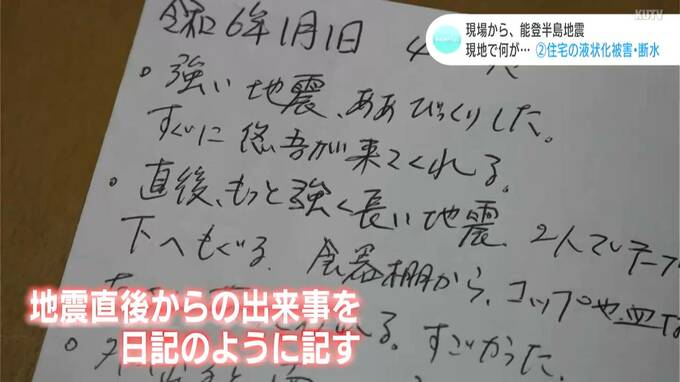 KUTV
現場から、能登半島地震
現地で何が… ②住宅の液状化被害・断水
令和6年1月1日
・強い地震、ああびっくりした。
すぐに悠吾が来てくれる。
・直後、もっと強く長い地震 2人でテーブ
下へもぐる。食器棚から、コップや皿な
れる。すごかった。
地震直後からの出来事を
日記のように記す